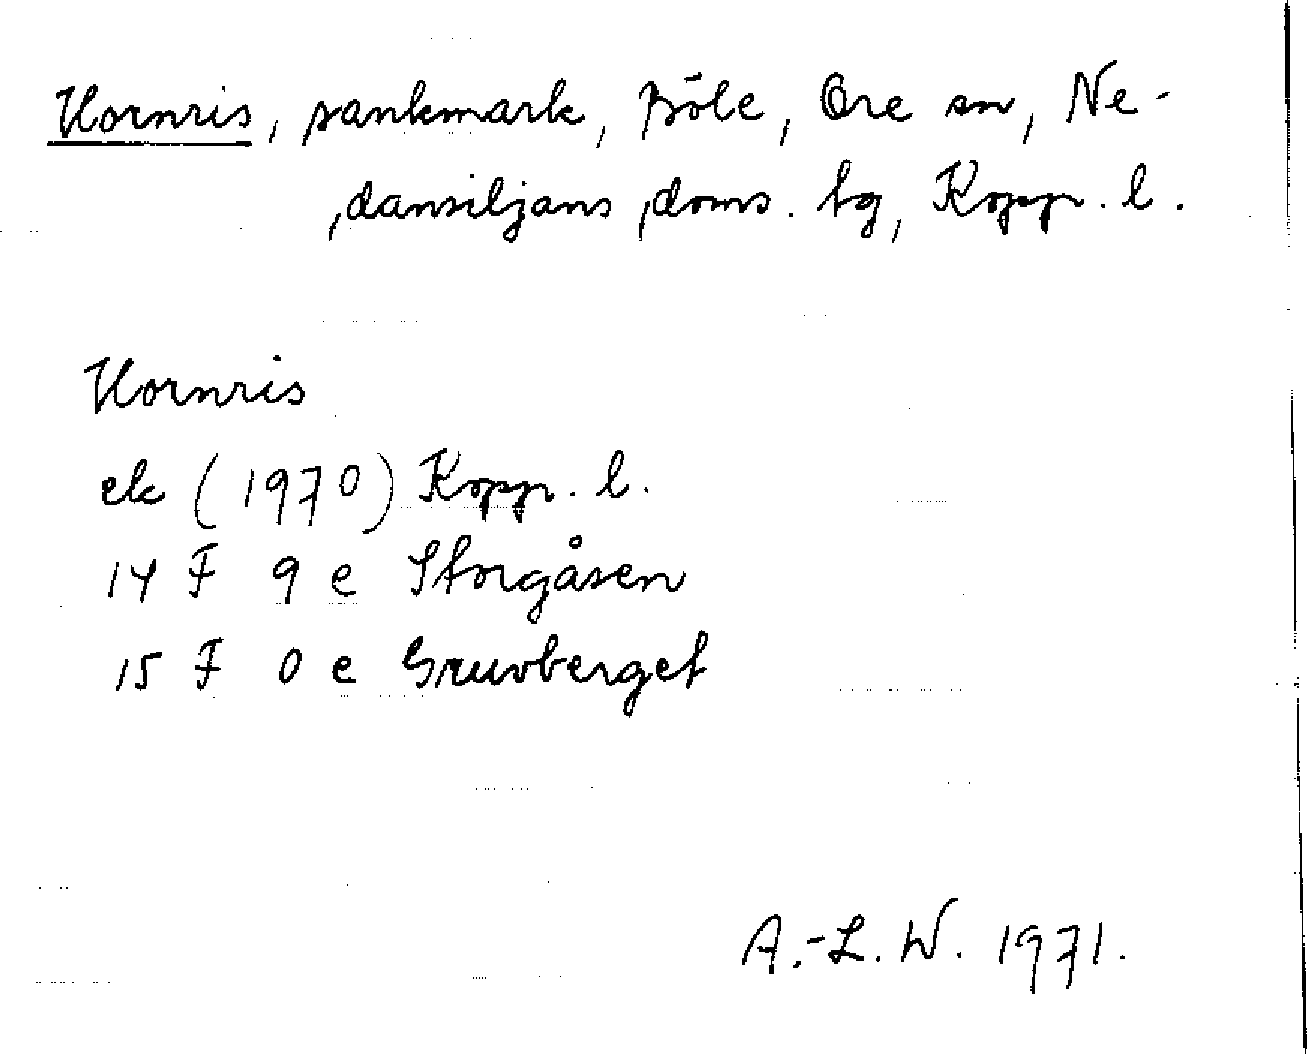 Hornris, sankmark, Böle, Ore sn, Ne-
dansiljans doms. tg, Kopp. l.
Hornris
ek (1970) Kopp. l.
14 F 9 e Storgåsen
15 F 0 e Gruvberget
A.-L. W. 1971.